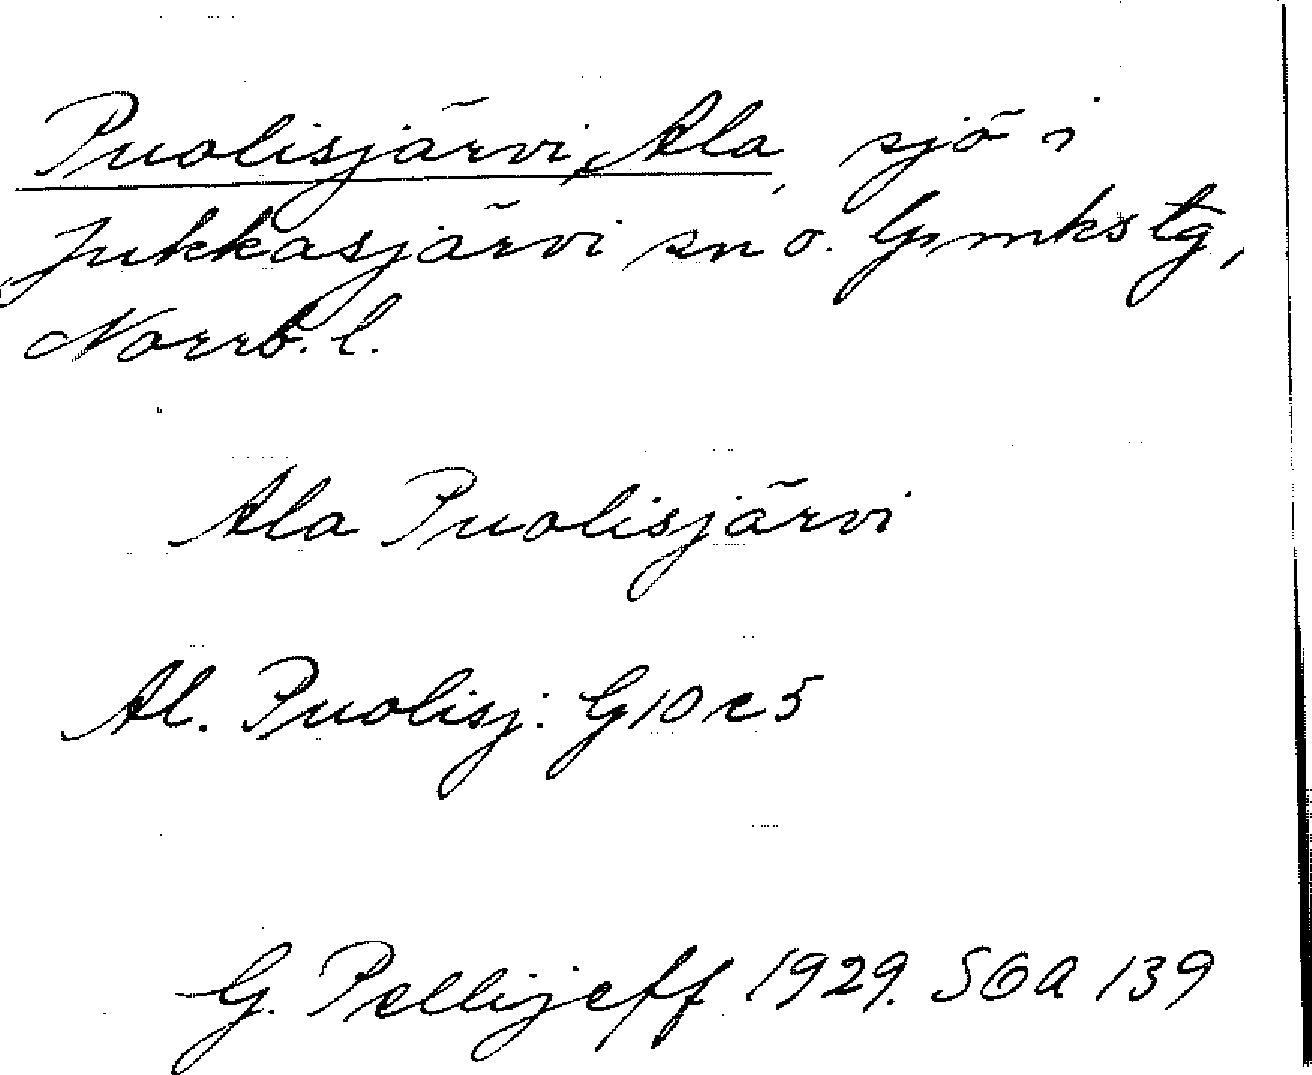 Puolisjärvi, Ala, sjö i
Jukkasjärvi sn o. lpmkstg,
Norrb. l.
Ala Puolisjärvi
Al. Puolisj: G10c5
G. Pellijeff 1929. SOA 139